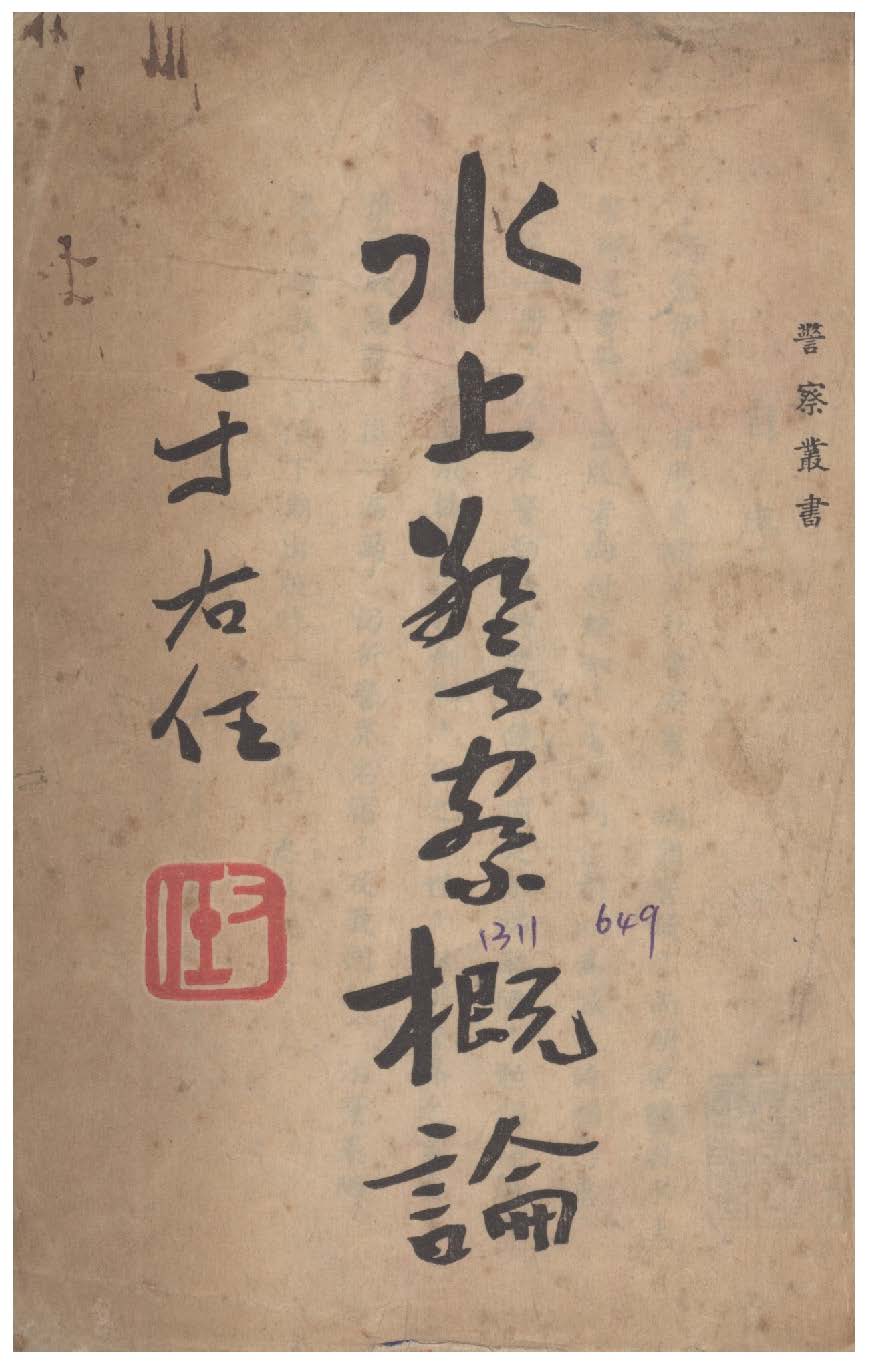 警察叢書
水上警察概論
于右任
1311 649